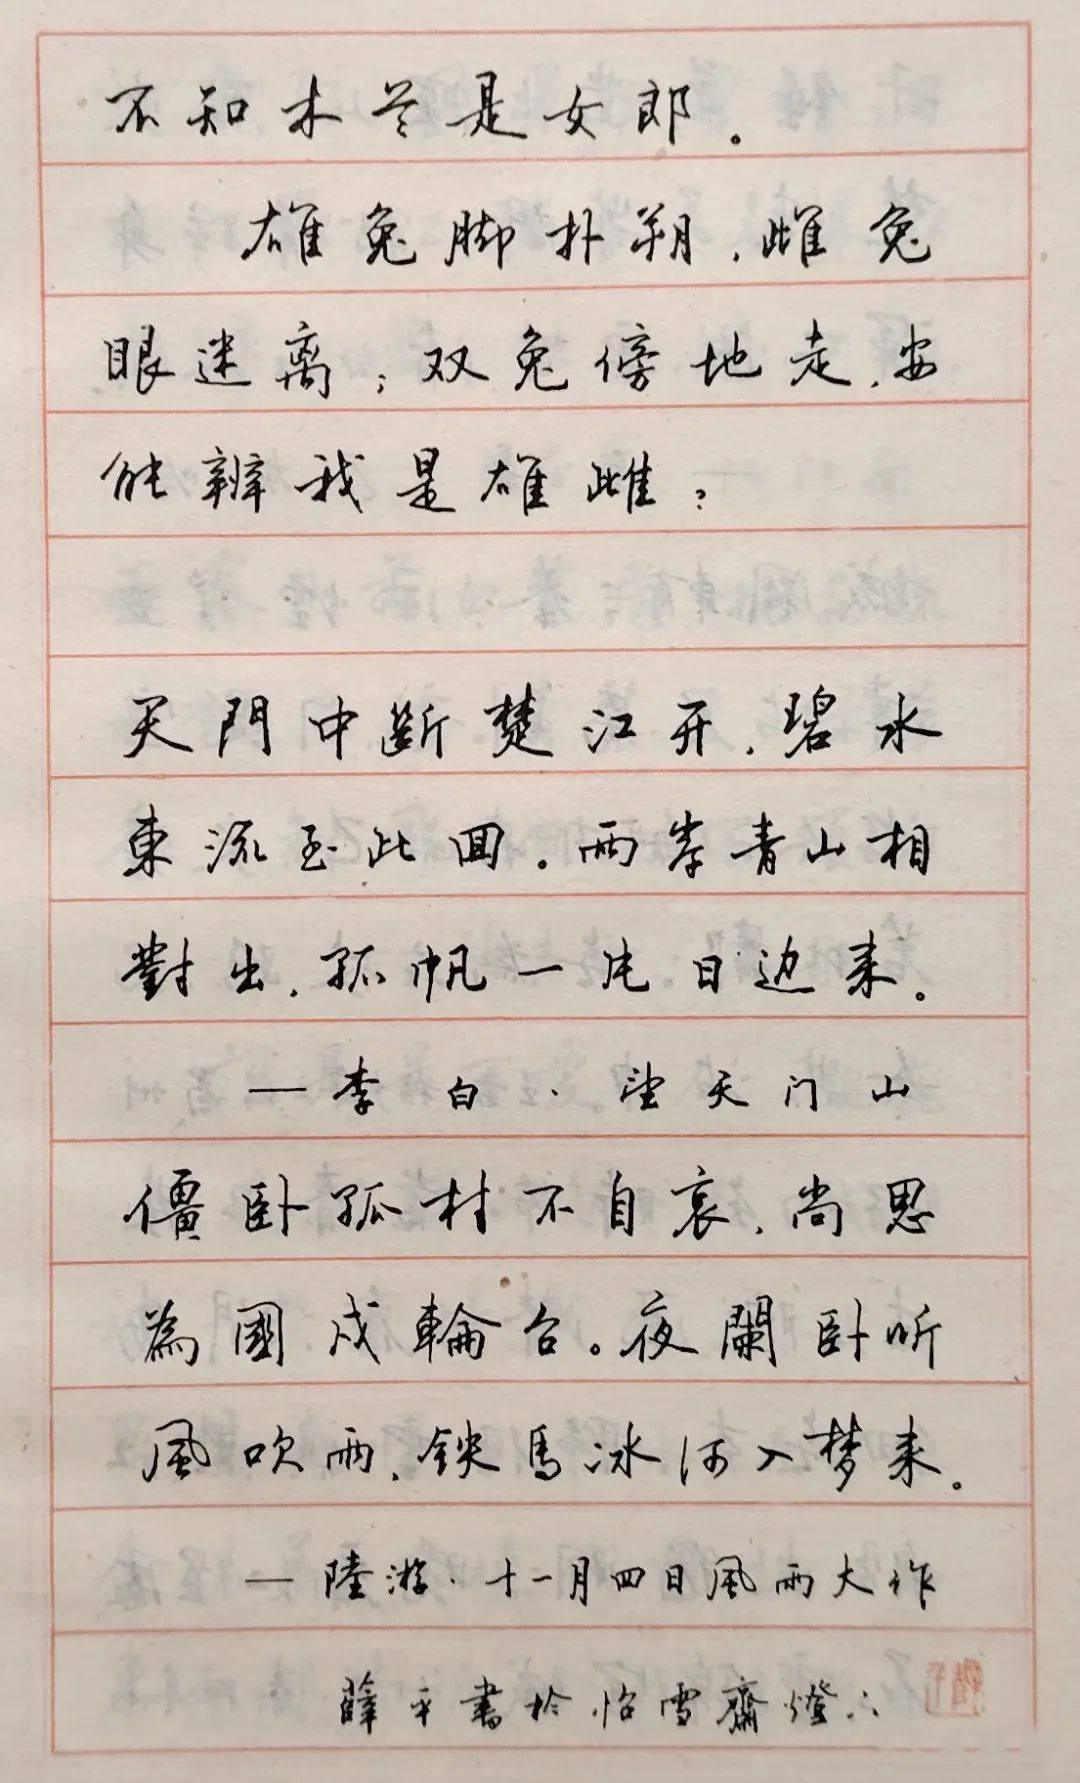 不知木兰是女郎。
雄兔脚扑朔，雌兔
眼迷离；双兔傍地走，安
能辨我是雄雌？
天門中断楚江开，碧水
東流至此回。两岸青山相
對出，孤帆一片日边来。
——李白·望天门山
僵卧孤村不自哀，尚思
為國戍輪台。夜闌卧听
風吹雨，鉄馬冰河入梦来。
——陸游·十一月四日風雨大作
薛平書於怡雪齋燈下